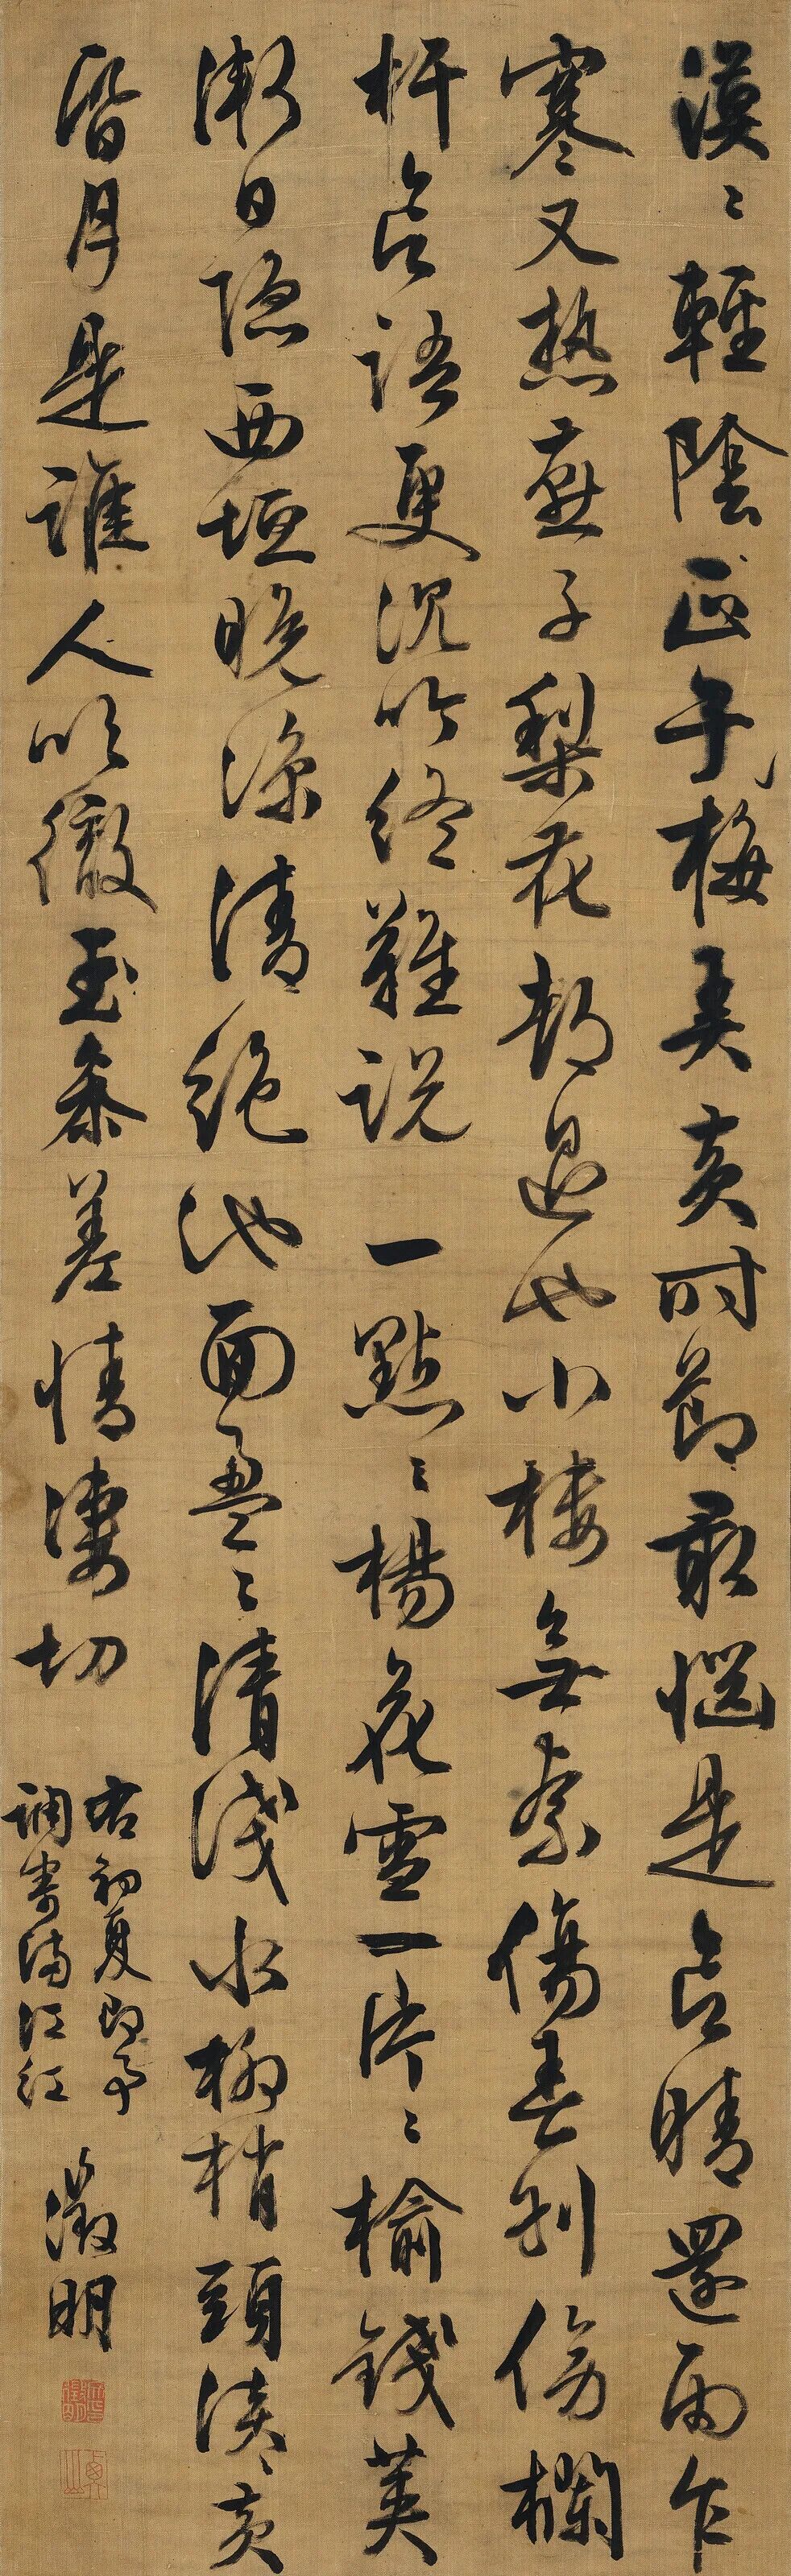 漠〻輕陰正子梅弄黄時節最惱是欲晴還雨乍
寒又熱燕子梨花都過也小樓無奈傷春別傍欄
杆欲語更沉吟終難說一點〻楊花雪一片〻榆錢莢
漸日隱西垣晚涼清絕池面盈〻清淺水柳梢頭淡〻黄
昏月是誰人吹徹玉參差情淒切
右初夏即事
調寄滿江紅
徵明